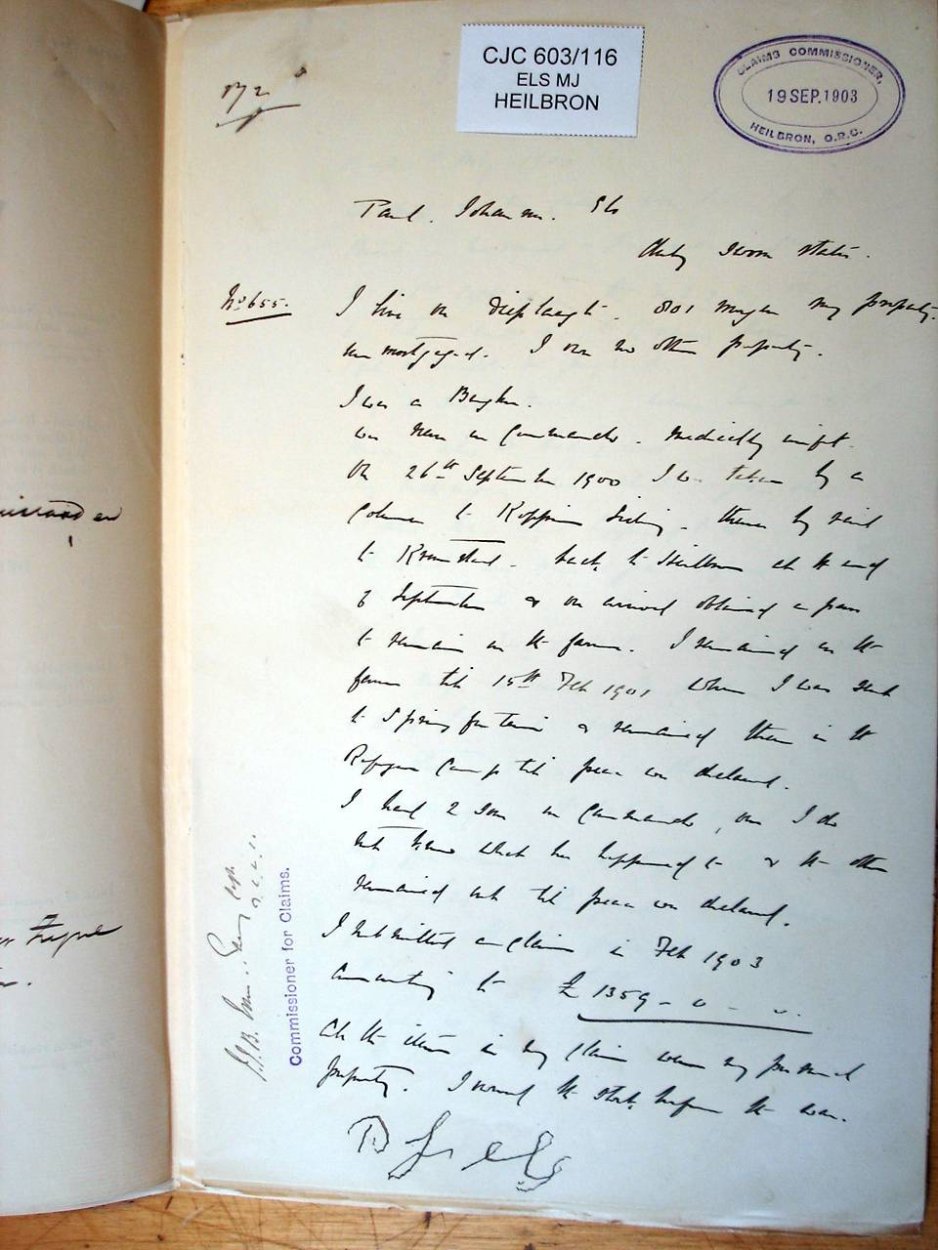 CJC 603/116
ELS MJ
HEILBRON
CLAIMS COMMISSIONER,
19 SEP. 1903
HEILBRON, O.R.C.
Paul Johannes Els
duly sworn states.
No 655.
I live on Dieplaagte. 801 morgen my property.
un mortgaged. I own no other property.
I was a Burgher.
was never on Commando. Medically unfit.
On 26th September 1900 I was taken by a
Column to Koppies Siding. thence by rail
to Kroonstad. back to Heilbron at the end
of September & on arrival obtained a pass
to remain on the farm. I remained on the
farm till 15th Feb 1901 when I was sent
to Springfontein & remained there in the
Refugee Camp till peace was declared.
I had 2 sons on Commando, one I do
not know what has happened to & the other
remained out till peace was declared.
I submitted a claim in Feb 1903
amounting to £ 1359 - 0 - 0.
All the items in my claim were my personal
property. I owned the stock before the war.
P J Els
Commissioner for Claims.